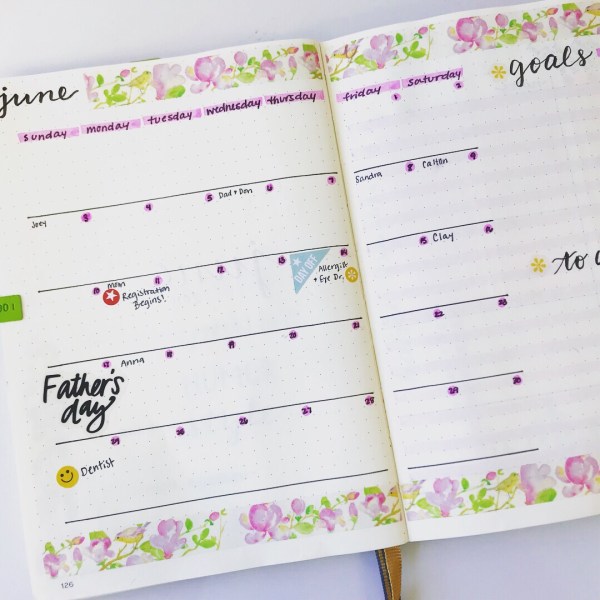 june
goals
sunday monday tuesday wednesday thursday
friday saturday
1 2
Joey 3 4 5 Dad + Don 6 7
Sandra 8 Calton 9
10 Mom 11 12 13 14
15 Clay 16
Registration
Begins!
DAY OFF
Allergist
+ Eye Dr.
to
17 Anna 18 19 20 21
22 23
Father's
day
24 25 26 27 28
29 30
Dentist
126